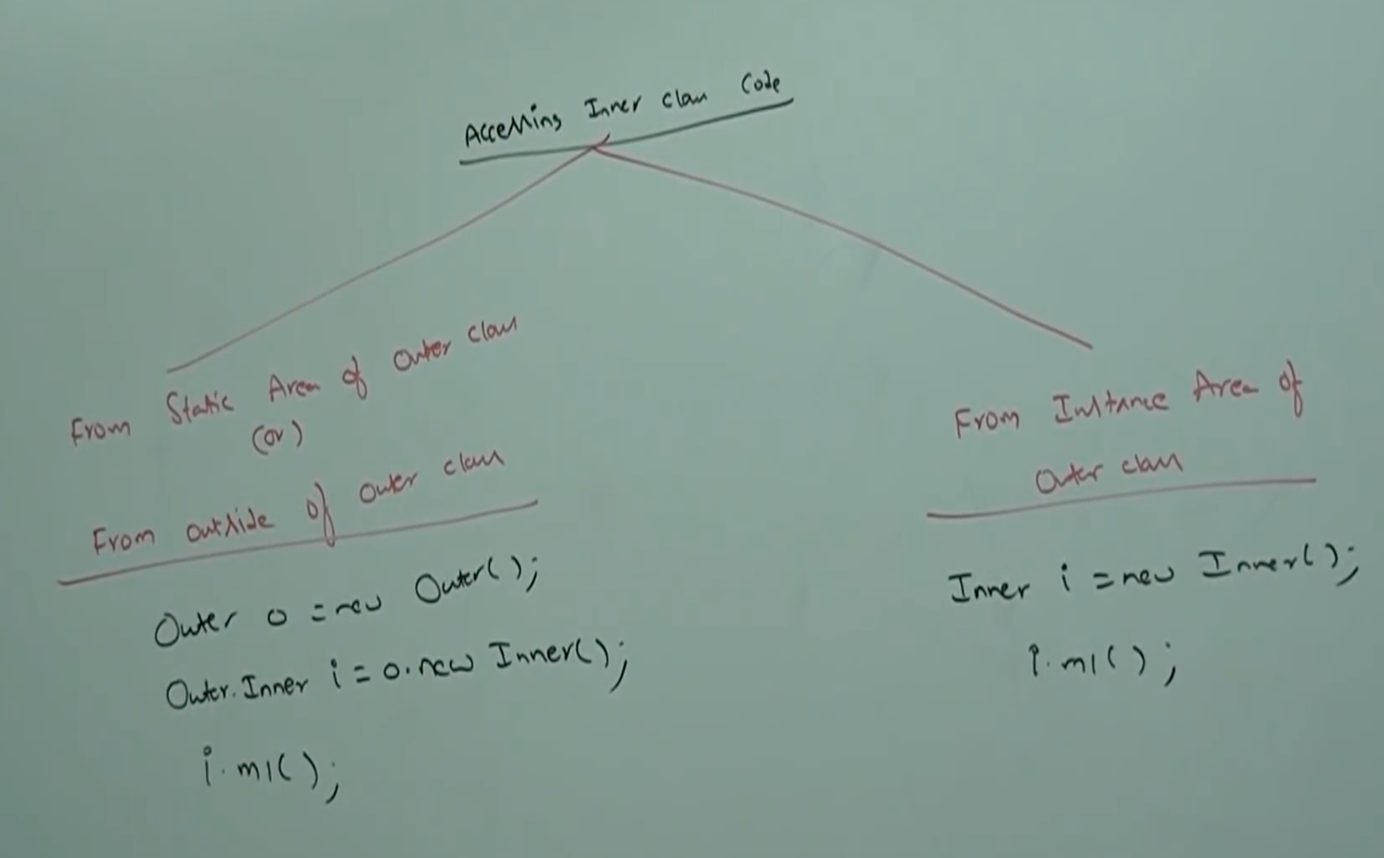 Accessing Inner class Code
From Static Area of Outer class
(or)
From outside of outer class
Outer o = new Outer();
Outer.Inner i = o.new Inner();
i.m1();
From Instance Area of
Outer class
Inner i = new Inner();
i.m1();